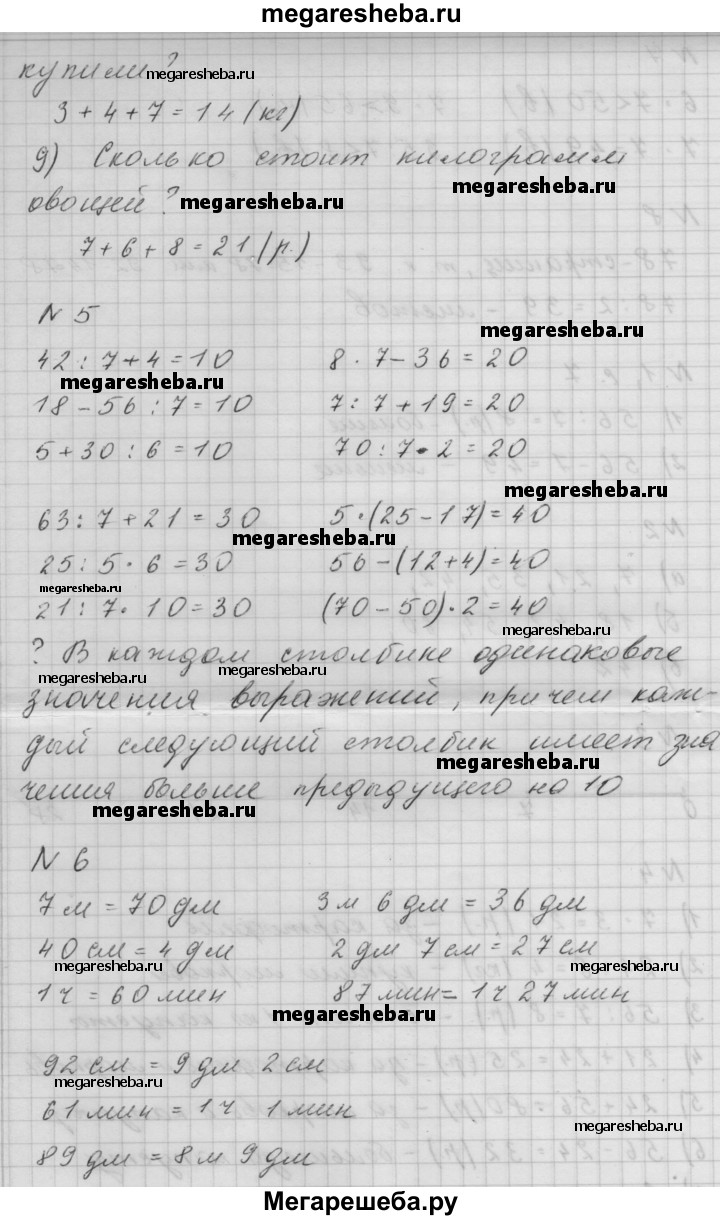 megaresheba.ru
купили? megaresheba.ru
3 + 4 + 7 = 14 (кг)
9) Сколько стоит килограмм
megaresheba.ru
овощей? megaresheba.ru
7 + 6 + 8 = 21 (р.)
N 5
megaresheba.ru
42 : 7 + 4 = 10 8 · 7 - 36 = 20
megaresheba.ru
18 - 56 : 7 = 10 7 : 7 + 19 = 20
5 + 30 : 6 = 10 70 : 7 · 2 = 20
megaresheba.ru
63 : 7 + 21 = 30 5 · (25 - 17) = 40
megaresheba.ru
25 : 5 · 6 = 30 56 - (12 + 4) = 40
megaresheba.ru
21 : 7 · 10 = 30 (70 - 50) · 2 = 40
megaresheba.ru
? В каждом столбике одинаковые
megaresheba.ru megaresheba.ru
значения выражений, причем каж-
дый следующий столбик имеет зна
megaresheba.ru
чения больше предыдущего на 10
megaresheba.ru
N 6
7 м = 70 дм 3 м 6 дм = 36 дм
40 см = 4 дм 2 дм 7 см = 27 см
megaresheba.ru megaresheba.ru
1 ч = 60 мин 87 мин = 1 ч 27 мин
megaresheba.ru
92 см = 9 дм 2 см
megaresheba.ru
61 мин = 1 ч 1 мин
megaresheba.ru
89 дм = 8 м 9 дм
megaresheba.ru
Мегарешеба.ру